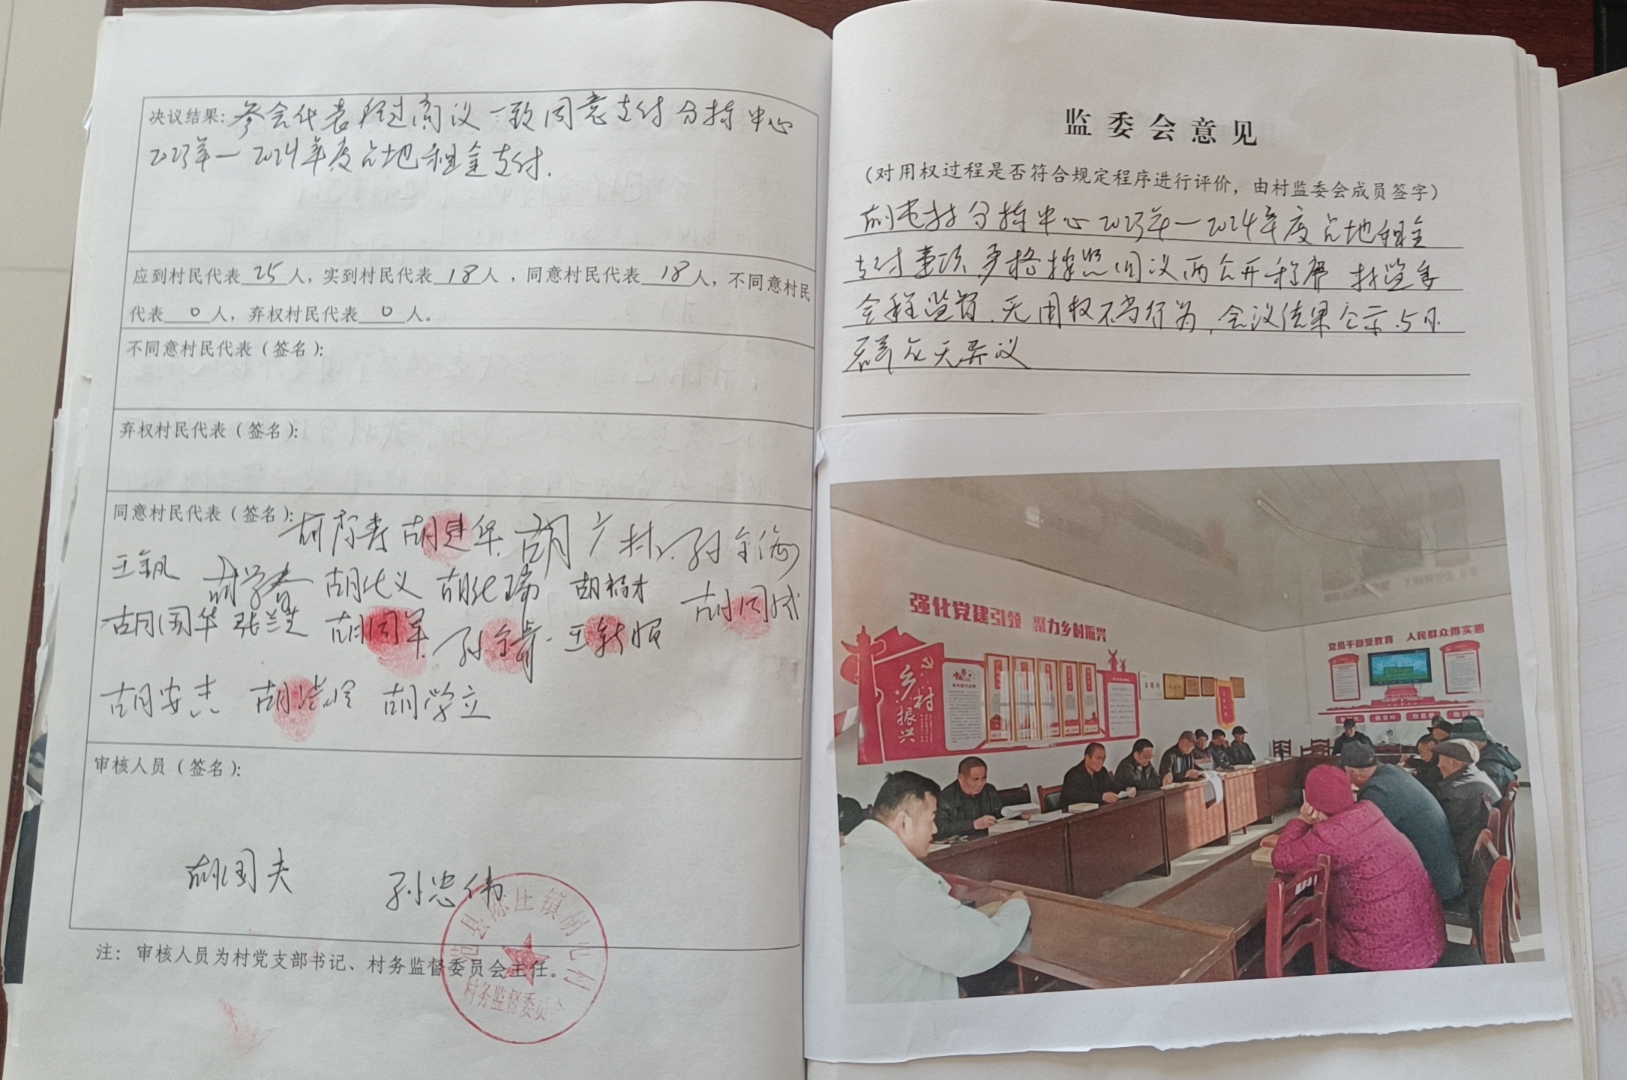 决议结果：参会代表经过商议一致同意支付分拣中心
2023年—2024年度占地租金支付.
应到村民代表25人，实到村民代表18人，同意村民代表18人，不同意村民
代表0人，弃权村民代表0人。
不同意村民代表（签名）：
弃权村民代表（签名）：
同意村民代表（签名）：
胡建华 胡广林 孙金海
胡学春 胡化义 胡化瑞 胡福才
胡国华 张兰芝 胡同军 胡同成
胡安志 胡学立
审核人员（签名）：
胡国夫 孙忠伟
注：审核人员为村党支部书记、村务监督委员会主任。
村务监督委员会
监委会意见
（对用权过程是否符合规定程序进行评价，由村监委会成员签字）
胡屯村分拣中心2023年—2024年度占地租金
支付事项，严格按照四议两公开程序 村监委
会程监督、无用权不当行为，会议结果公示.5日
群众无异议
强化党建引领 聚力乡村振兴
乡村振兴
党员干部受教育 人民群众得实惠